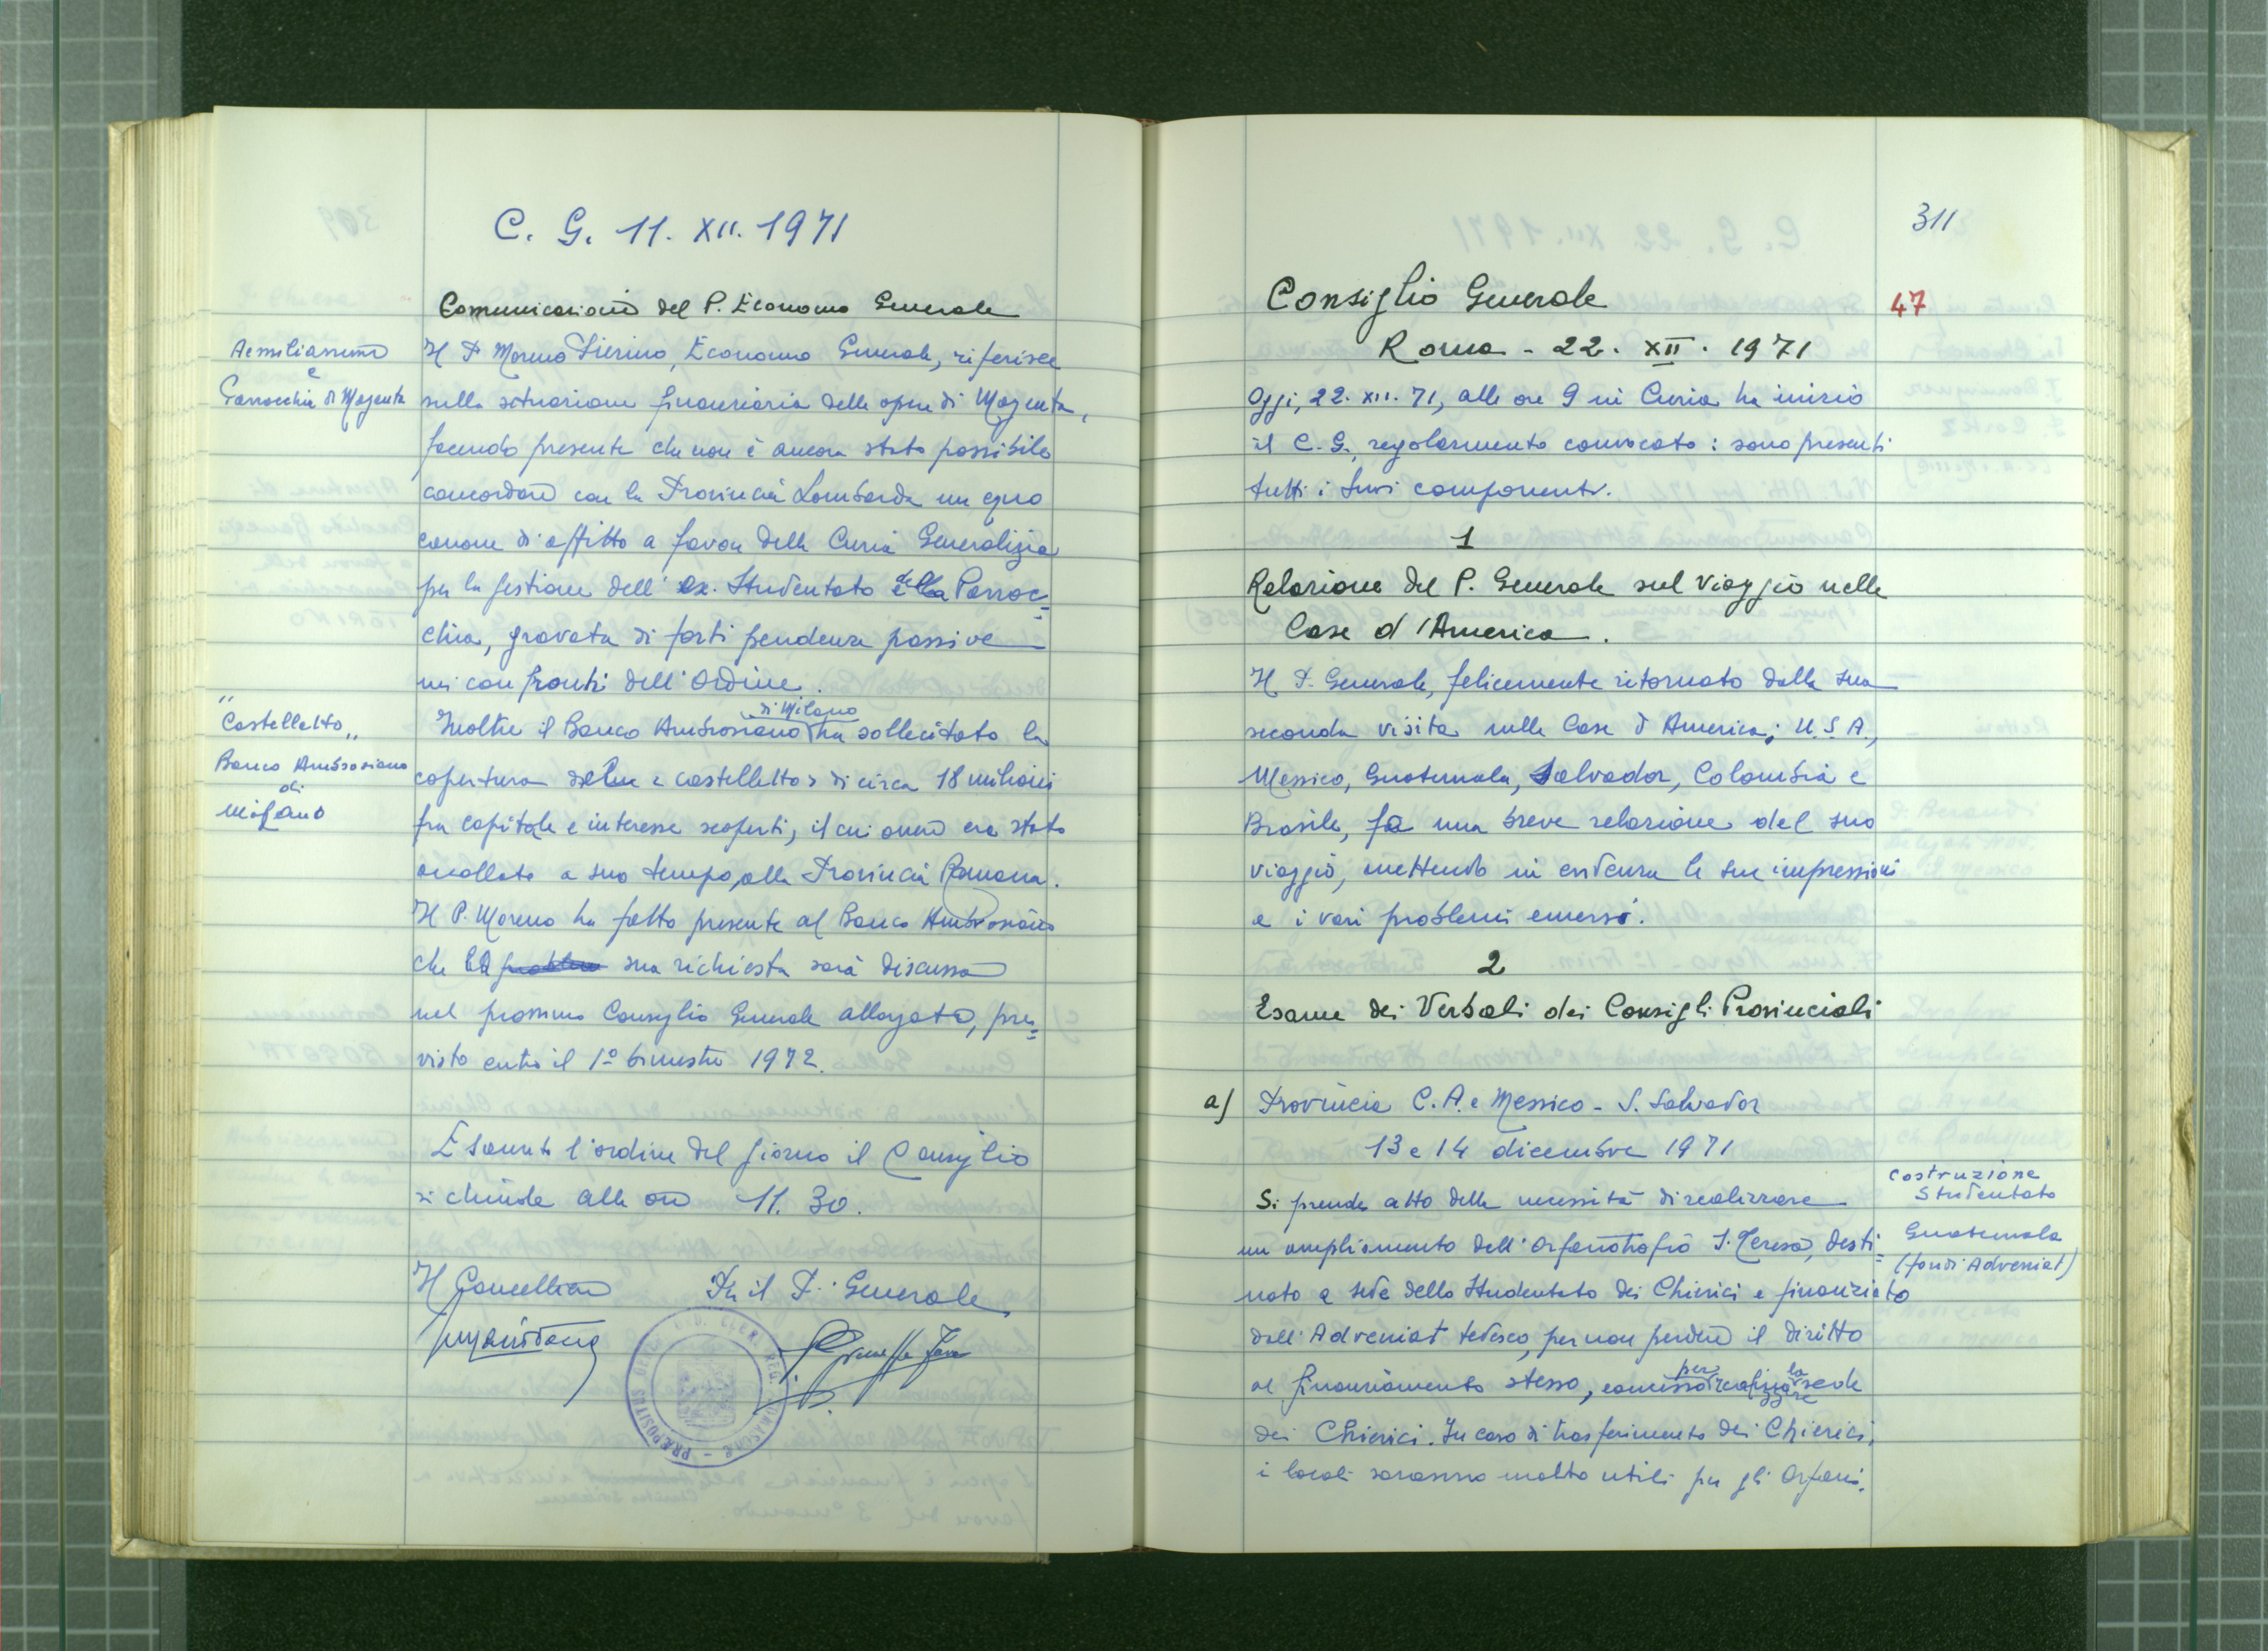 C. G. 11. XII. 1971
Comunicazioni del P. Economo Generale
Aemilianum
e
Parrocchia di Magenta
Il P. Moreno Pierino, Economo Generale, riferisce
sulla situazione finanziaria delle opere di Magenta,
facendo presente che non è ancora stato possibile
concordare con la Provincia Lombarda un equo
canone di affitto a favore della Curia Generalizia
per la gestione dell' ex. Studentato e della Parroc=
chia, gravata di forti pendenze passive
nei confronti dell' Ordine.
"Castelletto"
Banco Ambrosiano
di
Milano
Inoltre il Banco Ambrosiano di Milano ha sollecitato la
copertura del «castelletto» di circa 18 milioni
fra capitale e interesse scoperti, il cui onere era stato
accollato a suo tempo, alla Provincia Romana.
Il P. Moreno ha fatto presente al Banco Ambrosiano
che la sua richiesta sarà discussa
nel prossimo Consiglio Generale allargato, pre=
visto entro il 1º bimestre 1972.
Esaurito l'ordine del giorno il Consiglio
si chiude alle ore 11.30.
Il Cancelliere Per il P. Generale
311
Consiglio Generale
47
Roma - 22. XII. 1971
Oggi, 22. XII. 71, alle ore 9 in Curia ha inizio
il C. G., regolarmente convocato: sono presenti
tutti i suoi componenti.
1
Relazione del P. Generale sul viaggio nelle
Case d'America.
Il P. Generale, felicemente ritornato dalla sua
seconda visita nelle Case d'America; U.S.A.,
Messico, Guatemala, Salvador, Colombia e
Brasile, fa una breve relazione del suo
viaggio, mettendo in evidenza le sue impressioni
e i vari problemi emersi.
2
Esame dei Verbali dei Consigli Provinciali
a) Provincia C. A. e Messico - S. Salvador
13 e 14 dicembre 1971
Costruzione
Studentato
Guatemala
(fondi Adveniat)
Si prende atto della necessità di realizzare
un ampliamento dell' Orfanotrofio S. Teresa, desti=
nato a sede dello Studentato dei Chierici e finanziato
dall' Adveniat tedesco, per non perdere il diritto
al finanziamento stesso, concesso per la sede
dei Chierici. In caso di trasferimento dei Chierici,
i locali saranno molto utili per gli Orfani.